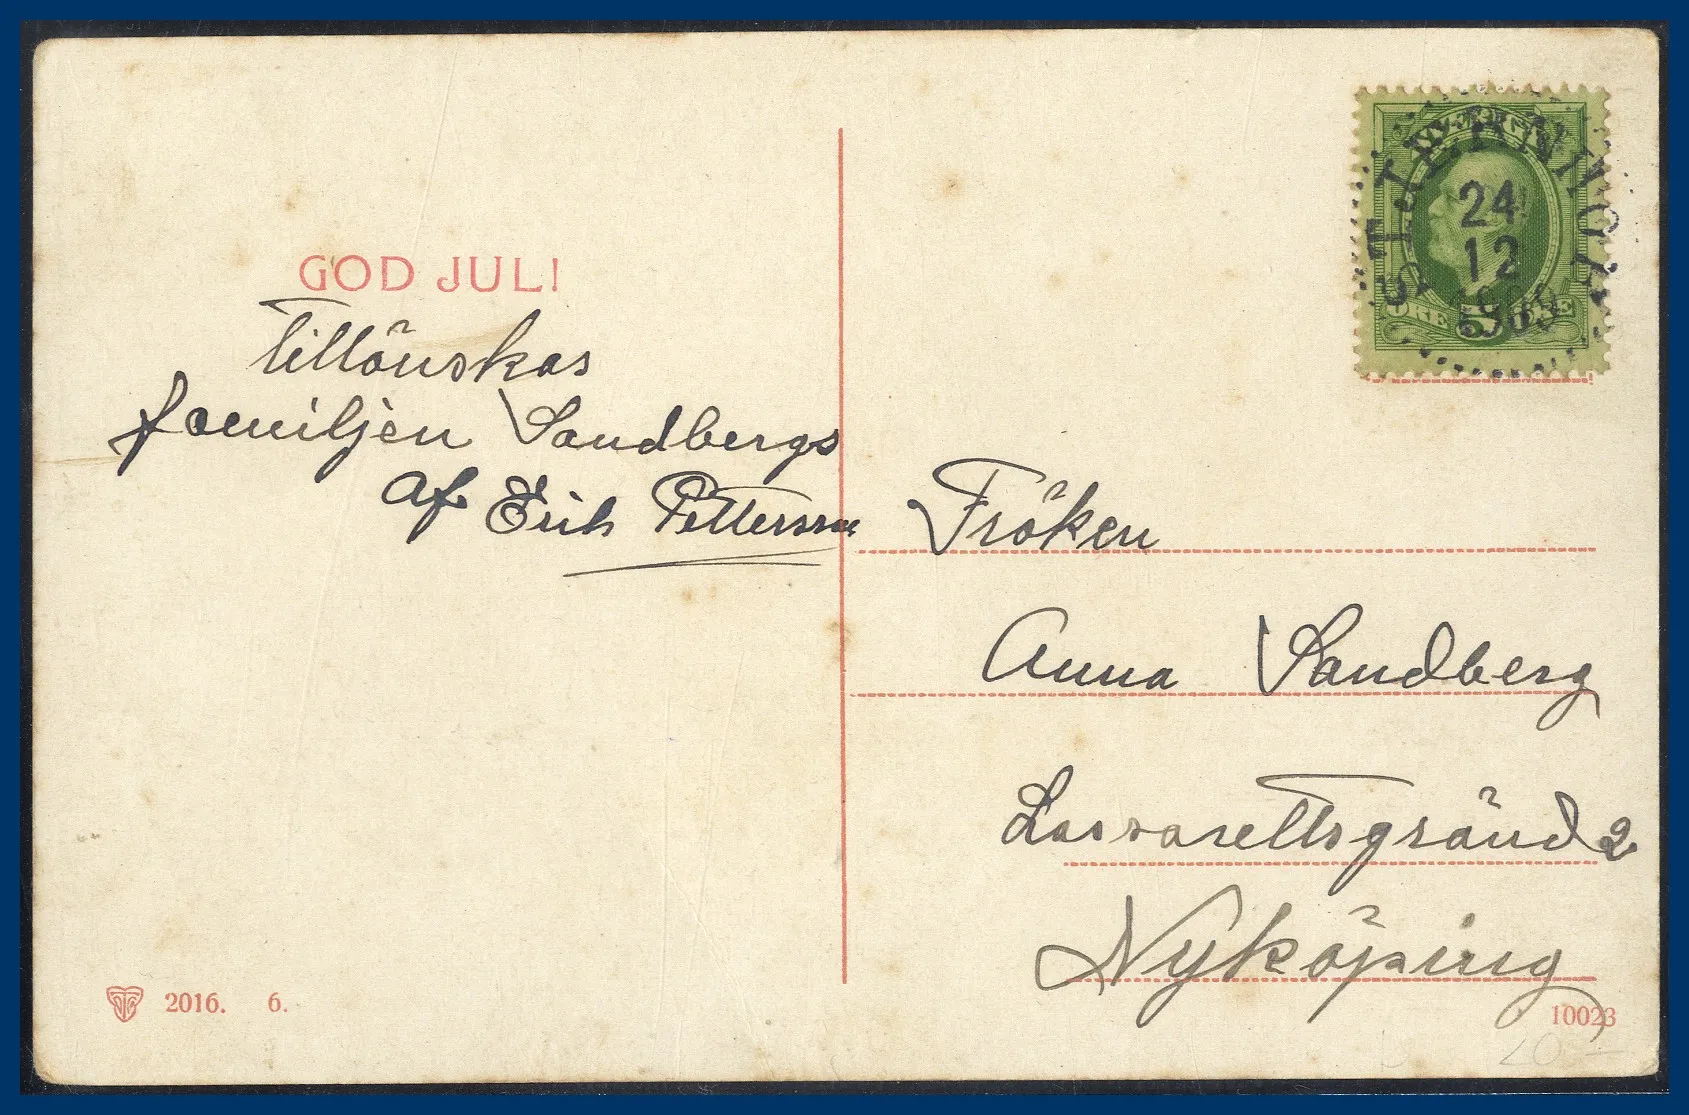 GOD JUL!
Tillönskas
familjen Sandbergs
af Erik Pettersson
24
12
ÖRE 5 ÖRE
Fröken
Anna Sandberg
Lassarettsgränd 2
Nyköping
2016. 6.
10023